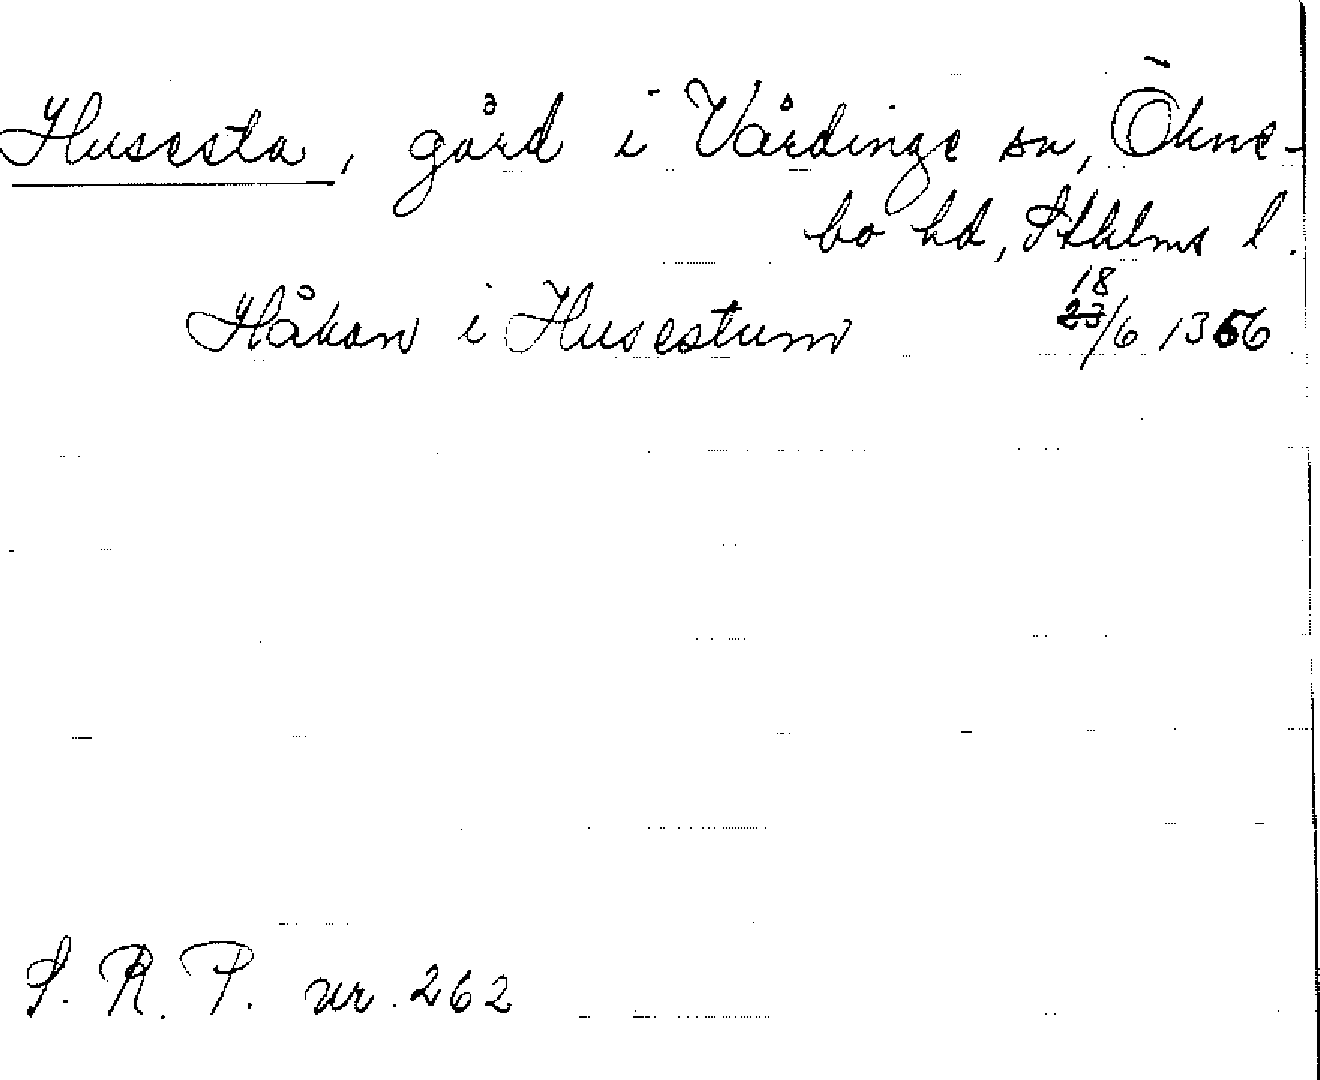 Husesta, gård i Vårdinge sn, Ökne-
bo hd, Sthlms l.
18
Håkan i Husestum 23/6 1366
S. R. P. nr. 262